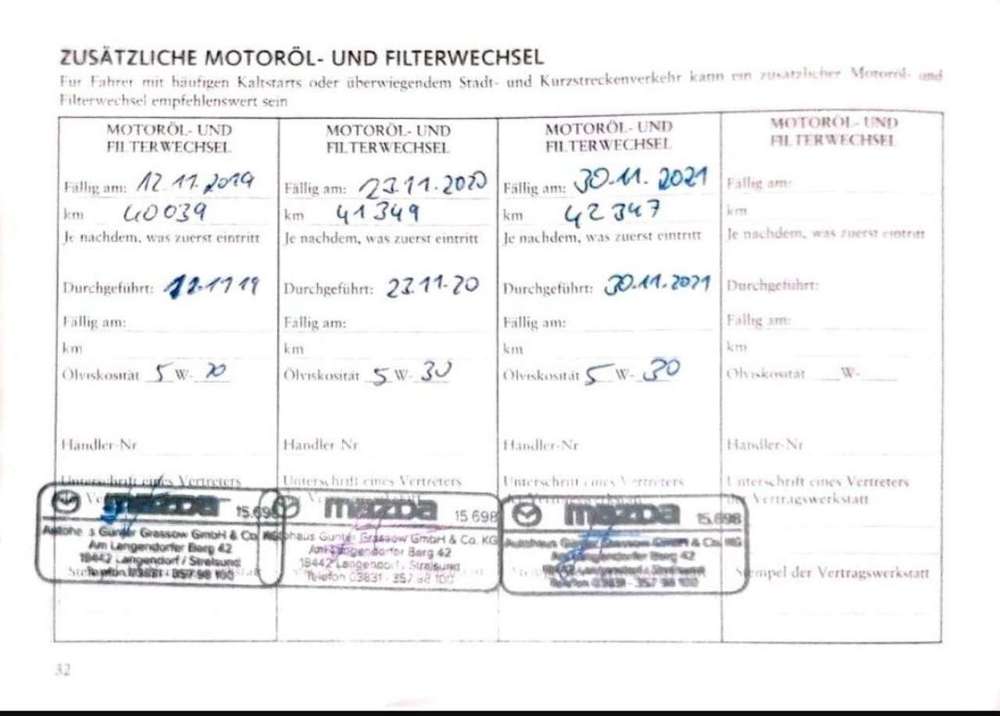 ZUSÄTZLICHE MOTORÖL- UND FILTERWECHSEL
Für Fahrer mit häufigen Kaltstarts oder überwiegendem Stadt- und Kurzstreckenverkehr kann ein zusätzlicher Motoröl- und
Filterwechsel empfehlenswert sein
MOTORÖL- UND
FILTERWECHSEL
Fällig am: 12.11.2019
km 40039
Je nachdem, was zuerst eintritt
Durchgeführt: 12.11.19
Fällig am:
km
Ölviskosität 5 W- 30
Händler-Nr
Unterschrift eines Vertreters
mazda 15.698
Autohaus Günter Grassow GmbH & Co. KG
Am Langendorfer Berg 42
18442 Langendorf / Stralsund
Telefon 03831 - 357 98 100
MOTORÖL- UND
FILTERWECHSEL
Fällig am: 23.11.2020
km 41349
Je nachdem, was zuerst eintritt
Durchgeführt: 23.11.20
Fällig am:
km
Ölviskosität 5 W- 30
Händler-Nr
Unterschrift eines Vertreters
mazda 15.698
Autohaus Günter Grassow GmbH & Co. KG
Am Langendorfer Berg 42
18442 Langendorf / Stralsund
Telefon 03831 - 357 98 100
MOTORÖL- UND
FILTERWECHSEL
Fällig am: 30.11.2021
km 42347
Je nachdem, was zuerst eintritt
Durchgeführt: 30.11.2021
Fällig am:
km
Ölviskosität 5 W- 30
Händler-Nr
Unterschrift eines Vertreters
der Vertragswerkstatt
mazda 15.698
Autohaus Günter Grassow GmbH & Co. KG
Am Langendorfer Berg 42
18442 Langendorf / Stralsund
Telefon 03831 - 357 98 100
MOTORÖL- UND
FILTERWECHSEL
Fällig am:
km
Je nachdem, was zuerst eintritt
Durchgeführt:
Fällig am:
km
Ölviskosität W-
Händler-Nr
Unterschrift eines Vertreters
der Vertragswerkstatt
Stempel der Vertragswerkstatt
32